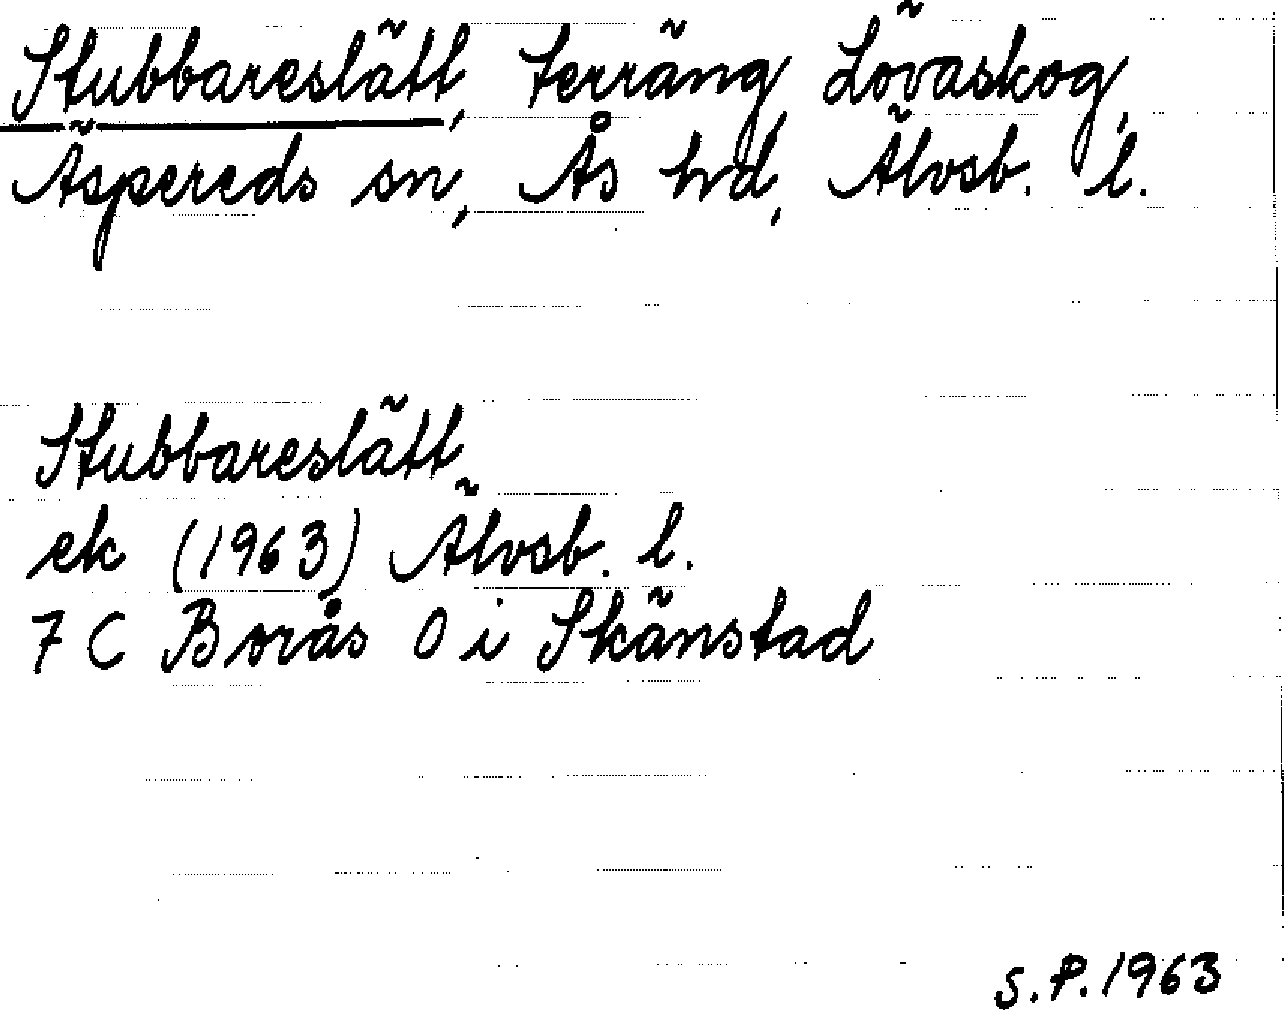 Stubbareslätt, terräng, Lövaskog,
Äspereds sn, Ås hd, Älvsb. l.
Stubbareslätt
ek (1963) Älvsb. l.
7 C Borås 0 i Skänstad
S.P. 1963